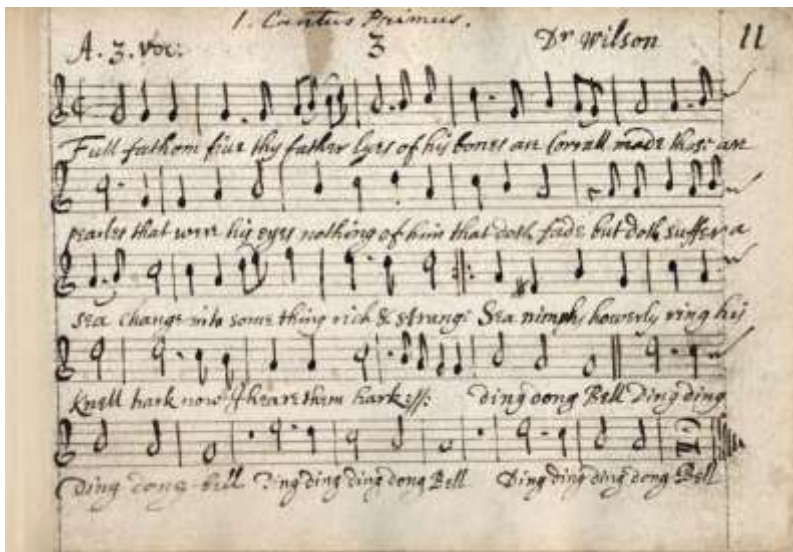 1. Cantus Primus.
A. 3. voc: 3 Dr Wilson 11
Full fathom fiue thy father lyes of his bones are Corrall made those are
pearles that were his eyes nothing of him that doth fade but doth suffer a
sea change into some thing rich & strange Sea nimphs howerly ring his
knell hark now I heare them hark :||: ding dong Bell Ding ding
Ding dong bell Ding ding ding dong Bell Ding ding ding dong Bell